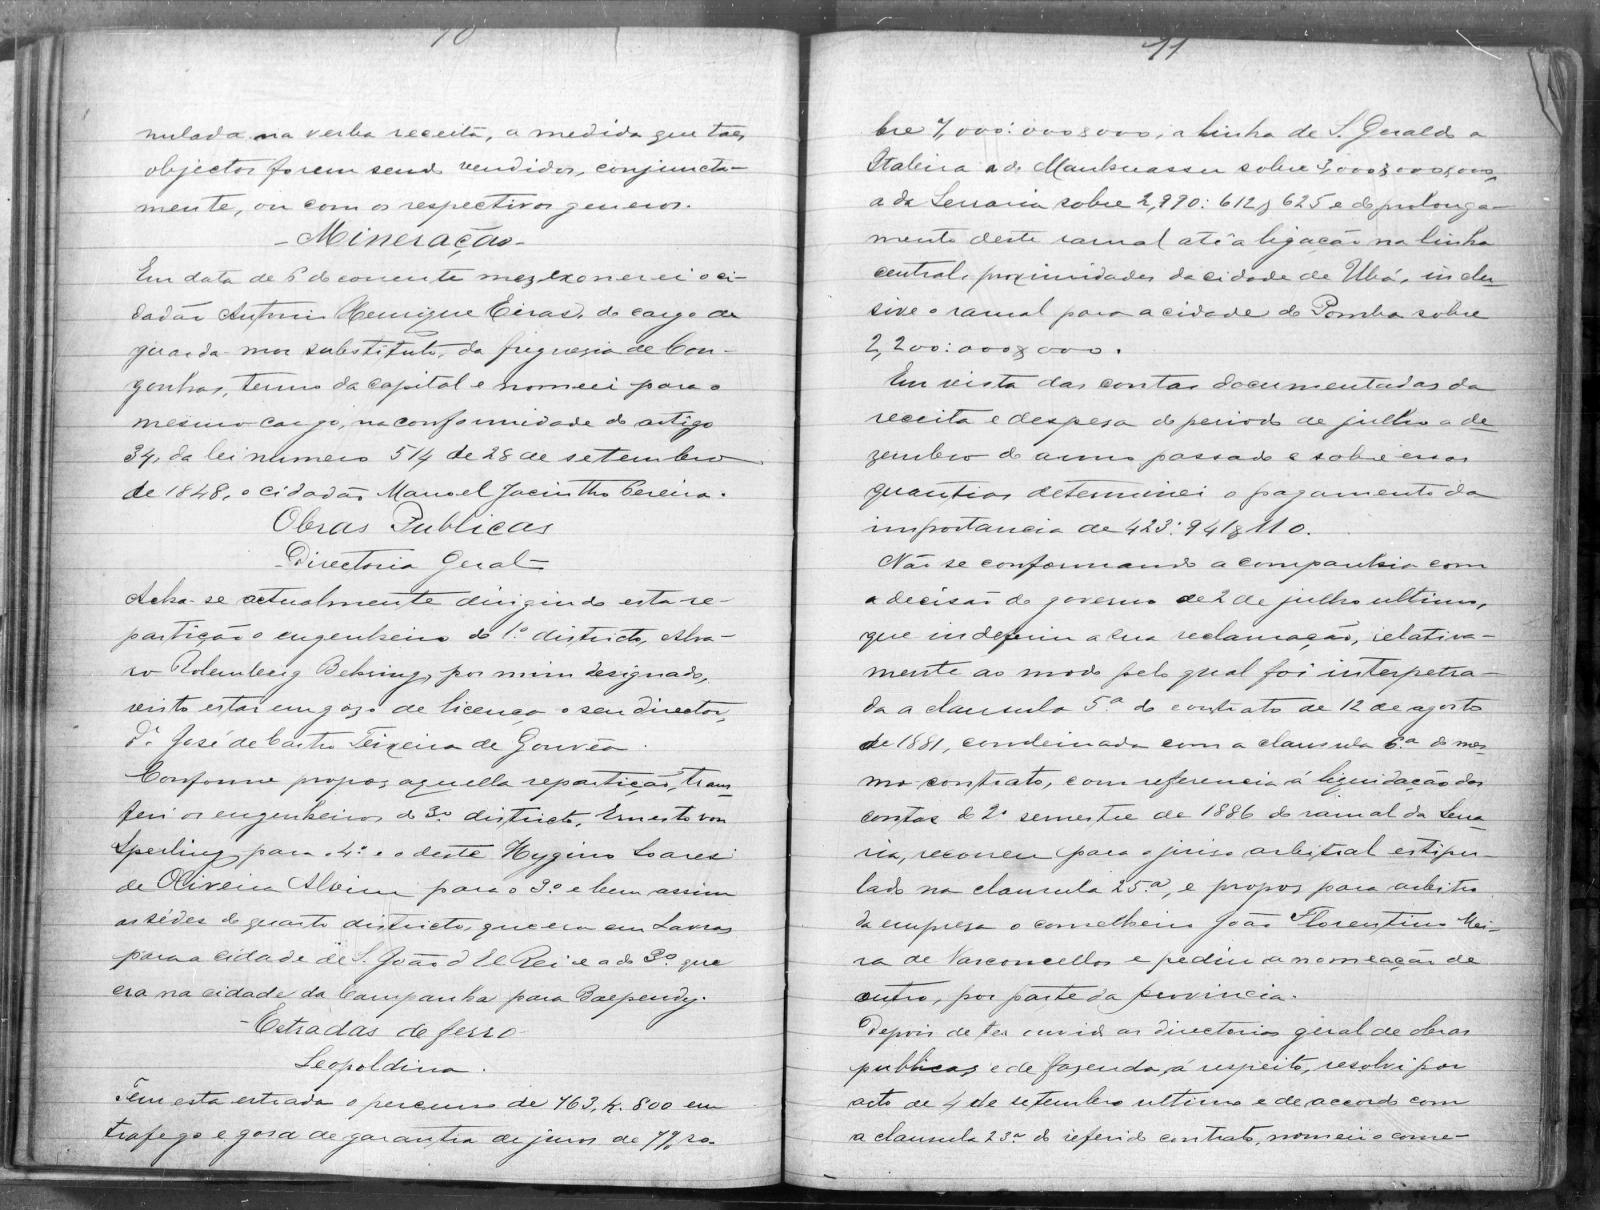 10
nulada na verba receita, a medida que taes
objectos forem sendo vendidos, conjuncta-
mente, ou com os respectivos generos.
- Mineração -
Em data de 6 do corrente mez exonerei o ci-
dadão Antonio Henrique Eiras, do cargo de
guarda-mor substituto, da freguezia de Con-
gonhas, termo da capital e nomeei para o
mesmo cargo, na conformidade do artigo
34, da lei numero 514 de 28 de setembro
de 1848, o cidadão Manoel Jacintho Pereira.
Obras Publicas
- Directoria Geral -
Acha-se actualmente dirigindo esta re-
partição o engenheiro do 1º districto, Alva-
ro Rolemberg Behring, por mim designado,
visto estar em gozo de licença o seu director,
Dr. José de Castro Teixeira de Gouvêa.
Conforme propoz aquella repartição, trans-
feri os engenheiros do 3º districto, Ernesto von
Sperling, para o 4º e o deste Hygino Soares
de Oliveira Alvim para o 3º e bem assim
as sédes do quarto districto, que era em Lavras
para a cidade de S. João d'El Rei e a do 3º que
era na cidade da Campanha para Baependy.
- Estradas de ferro
Leopoldina.
Tem esta estrada o percurso de 763, k. 800 em
trafego e gosa de garantia de juros de 7% so-
11
bre 7,000:000$000, a linha de S. Geraldo a
Itabira a do Manhuassu sobre 3,000$000$000,
a da Serraria sobre 2,990:612$625 e do prolonga-
mento deste ramal até a ligação na linha
central, proximidades da cidade de Ubá, inclu-
sive o ramal para a cidade do Pomba sobre
2,200:000$000.
Em vista das contas documentadas da
receita e despesa do periodo de julho a de-
zembro do anno passado e sobre essas
quantias determinei o pagamento da
importancia de 423:941$110.
Não se conformando a companhia com
a decisão do governo de 2 de julho ultimo,
que indeferiu a sua reclamação, relativa-
mente ao modo pelo qual foi interpetra-
da a clausula 5ª do contrato de 12 de agosto
de 1881, combinada com a clausula 6ª do mes-
mo contrato, com referencia á liquidação das
contas do 2º semestre de 1886 do ramal da Serra-
ria, recorreu para o juiso arbitral estipu-
lado na clausula 25ª, e propos para arbitro
da empresa o conselheiro João Florentino Mei-
ra de Vasconcellos e pediu a nomeação de
outro, por parte da provincia.
Depois de ter ouvido as directorias geral de obras
publicas e de fazenda, á respeito, resolvi por
acto de 4 de setembro ultimo e de accordo com
a clausula 23ª do referido contrato, nomeei o conse-